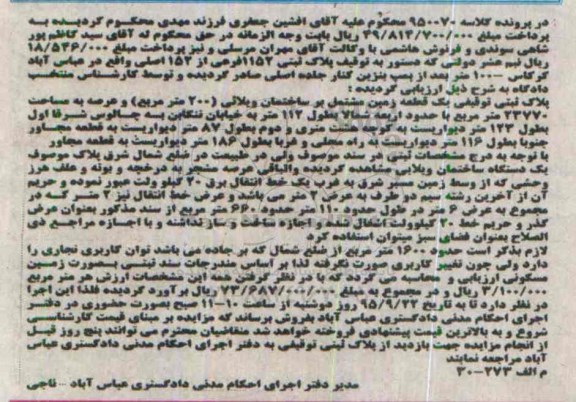 در پرونده کلاسه ۹۵۰۰۷۰ محکوم علیه آقای افشین جعفری فرزند مهدی محکوم گردیده به
پرداخت مبلغ ۴۹/۸۱۴/۷۰۰/۰۰۰ ریال بابت وجه الزمانه در حق محکوم له آقای سید کاظم پور
شاهی سوندی و فرنوش هاشمی با وکالت آقای مهران مرسلی و نیز پرداخت مبلغ ۱۸/۵۴۶/۰۰۰
ریال نیم عشر دولتی که دستور به توقیف پلاک ثبتی ۱۱۵۲فرعی از ۱۵۳ اصلی واقع در عباس آباد
کرکاس -۱۰۰ متر بعد از پمپ بنزین کنار جلده اصلی صادر گردیده و توسط کارشناس منتخب
دادگاه به شرح ذیل ارزیابی گردیده :
پلاک ثبتی توقیفی یک قطعه زمین مشتمل بر ساختمان ویلائی (۲۰۰ متر مربع) و عرصه به مساحت
۲۳۷۷۰ متر مربع با حدود اربعه شمالا بطول ۱۱۲ متر به خیابان تنکابن به چالوس شرقا اول
بطول ۱۲۳ متر دیواریست به کوچه هشت متری و دوم بطول ۸۷ متر دیواریست به قطعه مجاور
جنوبا بطول ۱۱۶ متر دیواریست به راه محلی و غربا بطول ۱۸۶ متر دیواریست به قطعه مجاور
با توجه به درج مشخصات ثبتی در سند موصوف ولی در طبیعت در ضلع شمال شرق پلاک موصوف
یک دستگاه ساختمان ویلایی مشاهده گردیده والباقی عرصه مشجر به درخچه و بوته و علف هرز
وحشی که از وسط زمین مسیر شرق به غرب یک خط انتقال برق ۲۰ کیلو ولت عبور نموده و حریم
آن از آخرین رشته سیم دو طرف به عرض ۲ متر می باشد و عرض خط انتقال نیز ۲ متر که در
مجموع به عرض ۶ متر در طول حدود ۱۱۱ متر حدود ۶۶۶ متر مربع از سند مذکور بعنوان عرض
گذر و حریم خط ۲۰ کیلوولت اشغال شده و اجازه ساخت و ساز نداشته و با اجازه مراجع ذی
الصلاح بعنوان فضای سبز میتوان استفاده کرد
لازم بذکر است حدود ۱۶۰۰ متر مربع از ضلع شمال که بر جاده می باشد توان کاربری تجاری را
دارد ولی چون تغییر کاربری صورت نگرفته لذا بر اساس مندرجات سند ثبتی بصورت زمین
مسکونی ارزیابی و محاسبه می گردد که با در نظر گرفتن همه این مشخصات ارزش هر متر مربع
۳/۱۰۰/۰۰۰ ریال و در مجموع به مبلغ ۷۳/۶۸۷/۰۰۰/۰۰۰ ریال برآورد گردیده فلذا این اجرا
در نظر دارد تا به تاریخ ۹۵/۹/۲۲ روز دوشنبه از ساعت ۱۰-۱۱ صبح بصورت حضوری در دفتر
اجرای احکام مدنی دادگستری عباس آباد بفروش برساند که مزایده بر مبنای قیمت کارشناسی
شروع و به بالاترین قیمت پیشنهادی فروخته خواهد شد متقاضیان محترم می توانند پنج روز قبل
از انجام مزایده جهت بازدید از پلاک ثبتی توقیفی به دفتر اجرای احکام مدنی دادگستری عباس
آباد مراجعه نمایند
م الف ۲۷۳-۳۰
مدیر دفتر اجرای احکام مدنی دادگستری عباس آباد - ناجی